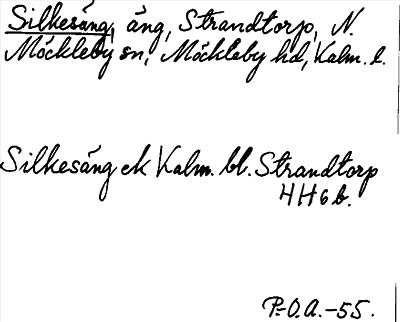 Silkesäng, äng, Strandtorp, N.
Möckleby sn, Möckleby hd, Kalm. l.
Silkesäng ek Kalm. bl. Strandtorp
4H6b.
P.O.A.-55.